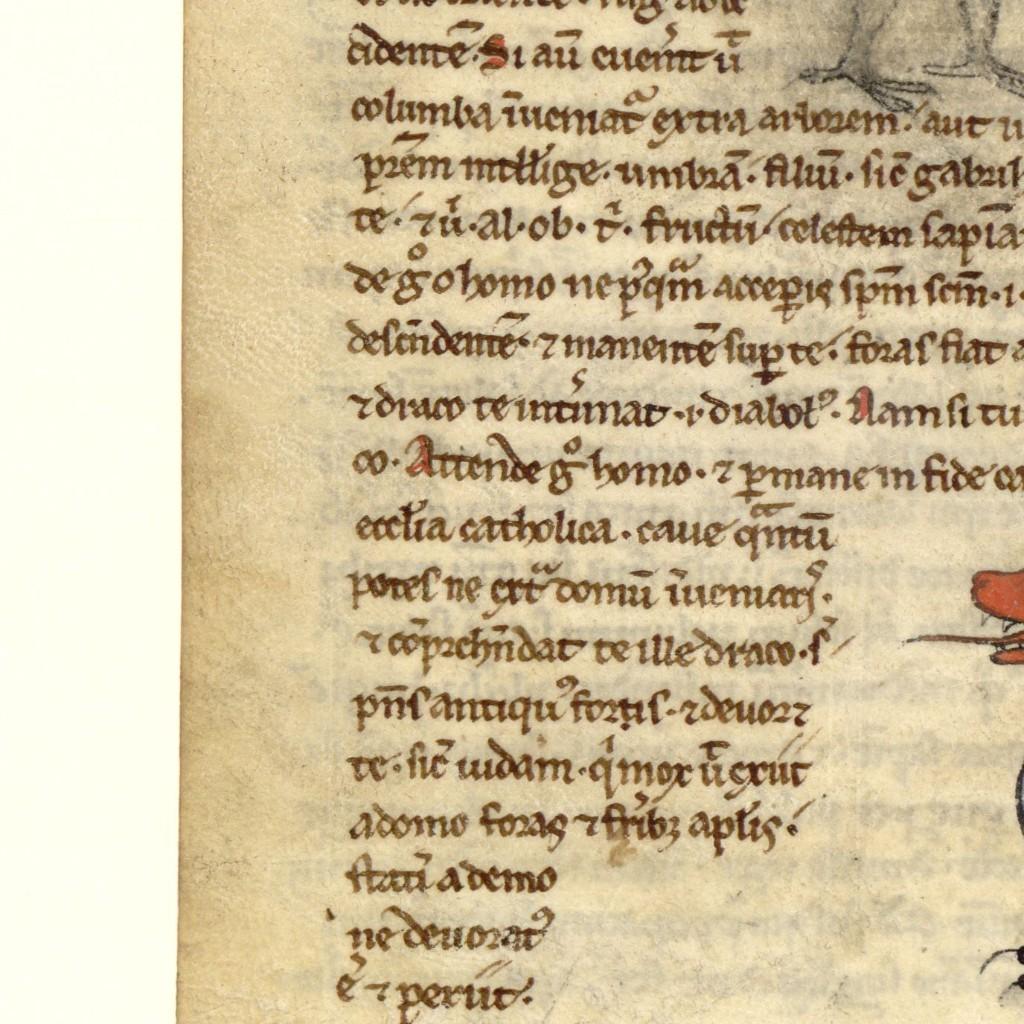 cidentē. Si aū euen̄it ut̄
columba īueniat᷑ extra arborem. aut u
pr̄em intell̄ige. umbrā. filiū. sic̄ gabriel
te. ⁊ uͥ. al. ob. tͥ. fructū. celestem sapīa
de gͦ o homo ne pꝰqͣm acceperis spm̄ scm̄. i.
descn̄dentē. ⁊ manentē suꝑ te. foras fiat
⁊ draco te intīmat. i. diabolꝰ. Nam si tu
co. Attende gͦ homo. ⁊ ꝑmane in fide ca
eccl̄ia catholica. cave qͣntū
potes ne extͣ domū īueniarꝭ.
⁊ cōprehn̄dat te ille draco. ſ
pn̄s antiquꝰ fortis. ⁊ devor⁊
te. sic̄ iudam. qͥ mox ut̄ exiit
a domo foras ⁊ fr̄ibꝫ apl̄is.
statī a demo
ne devoratꝰ
ē ⁊ periit.